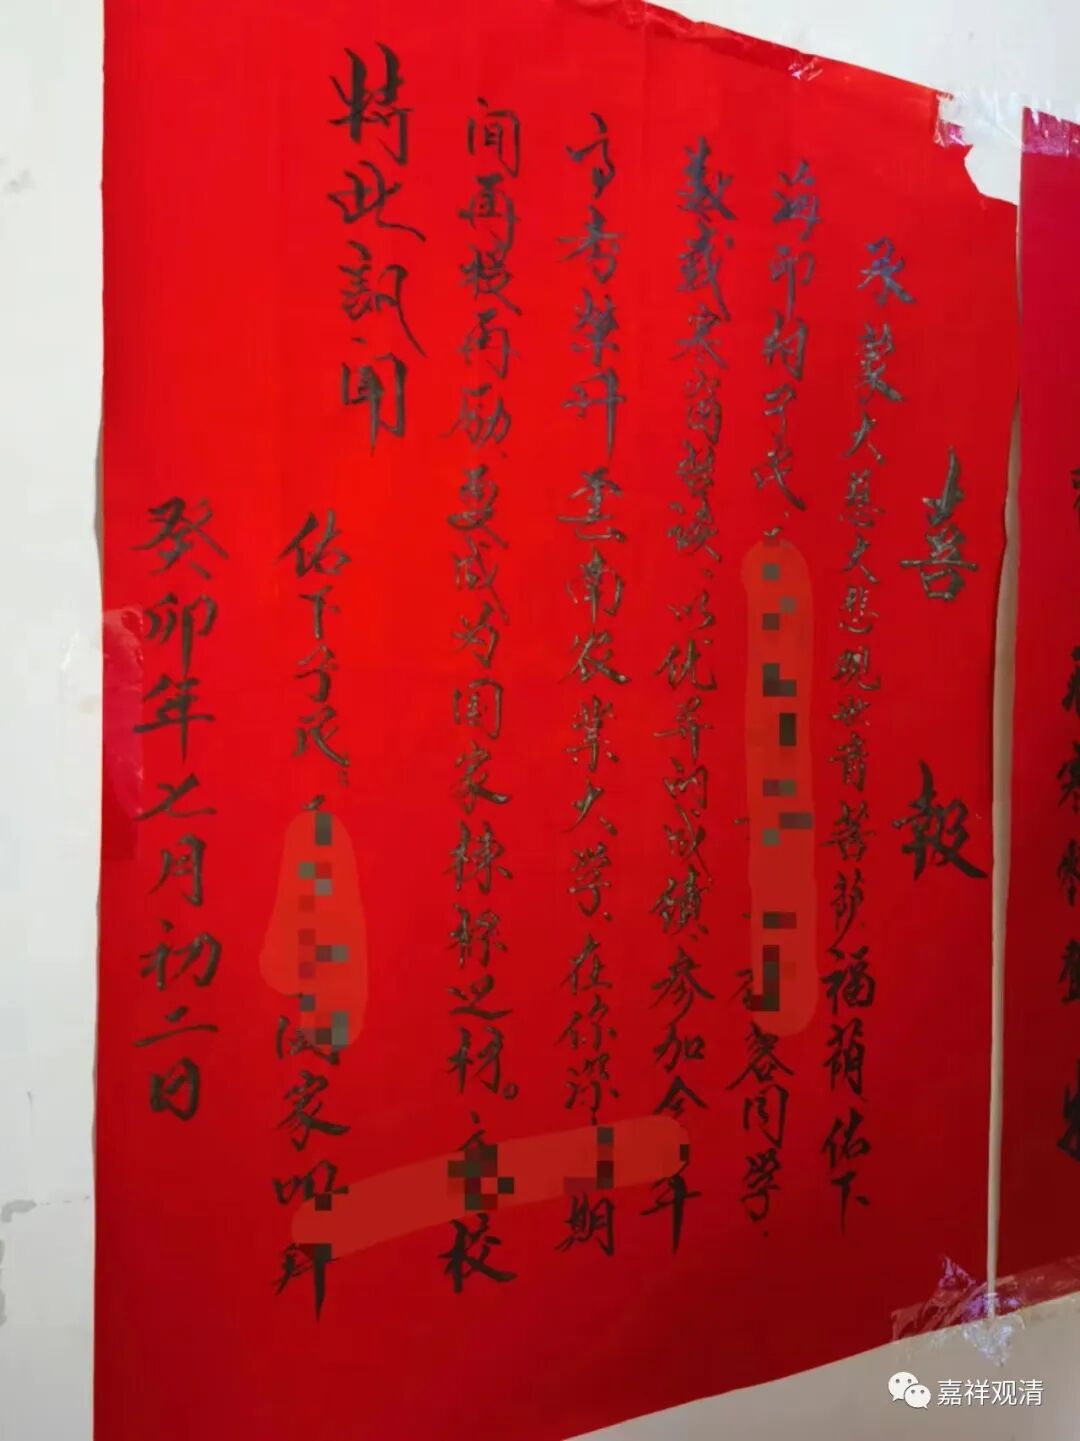 喜報
承蒙大慈大悲观世音菩萨，福荫佑下
海印子民，容同学，
数载寒窗苦读、以优异的成绩，参加今年
高考荣升雲南农业大学，在你深期
间再接再励，要成为国家栋樑之材。校
特此訊闻
佑下子民：阖家叩拜
癸卯年七月初二日
嘉祥观清